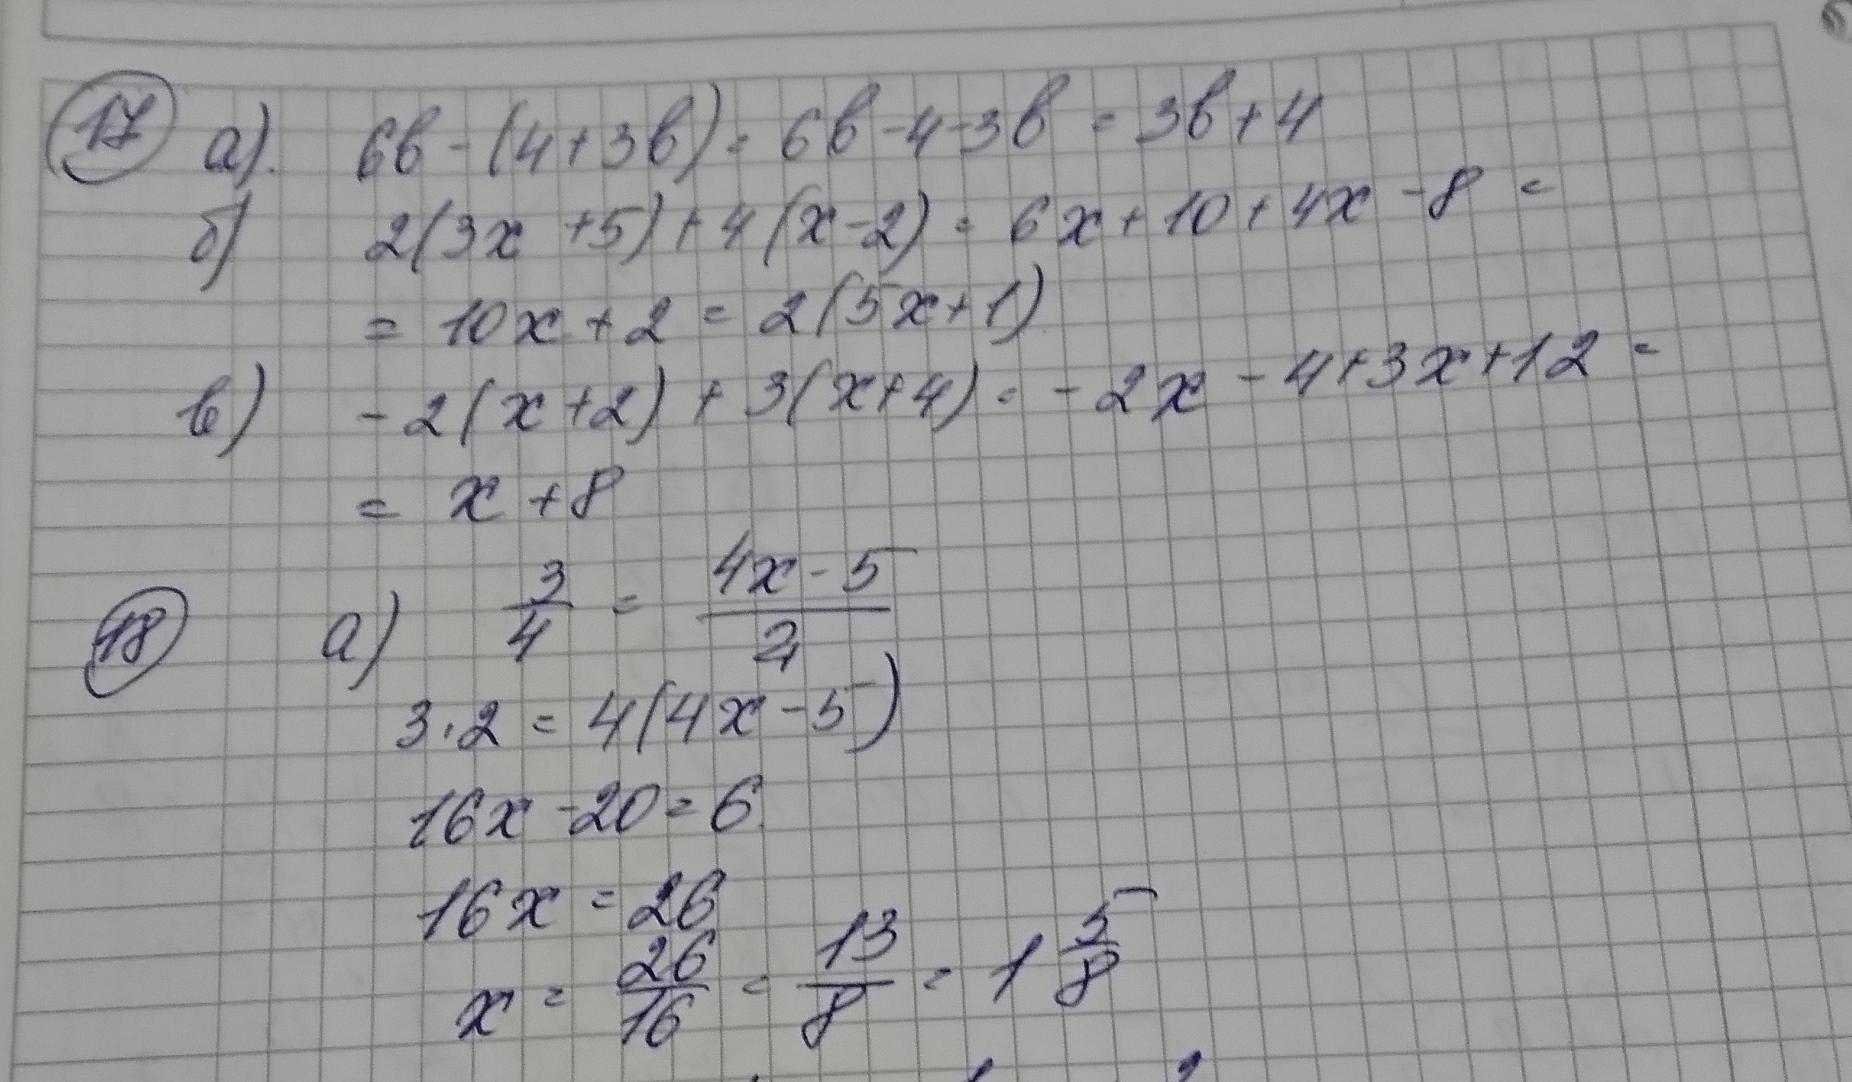 17 а). 6b - (4 + 3b) = 6b - 4 - 3b = 3b + 4
б) 2(3x + 5) + 4(x - 2) = 6x + 10 + 4x - 8 =
= 10x + 2 = 2(5x + 1)
в) - 2(x + 2) + 3(x + 4) = - 2x - 4 + 3x + 12 =
= x + 8
18 а) 3/4 = (4x - 5)/2
3 · 2 = 4(4x - 5)
16x - 20 = 6
16x = 26
x = 26/16 = 13/8 = 1 5/8